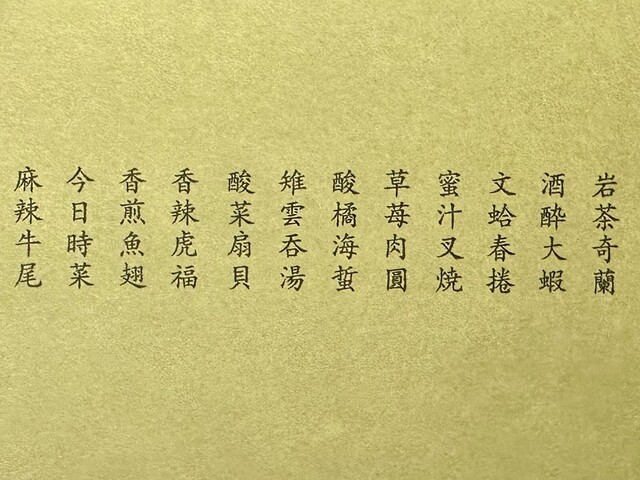 岩茶奇蘭
酒醉大蝦
文蛤春捲
蜜汁叉焼
草苺肉圓
酸橘海蜇
雉雲吞湯
酸菜扇貝
香辣虎福
香煎魚翅
今日時菜
麻辣牛尾